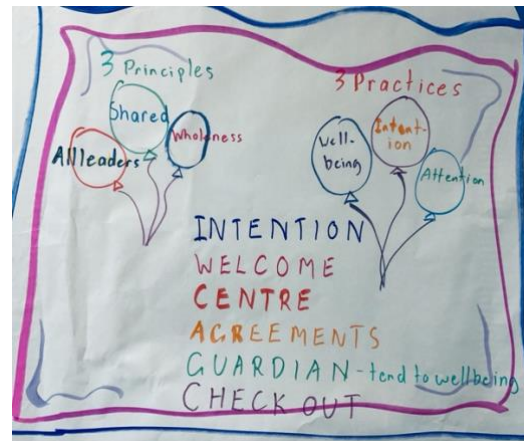 3 Principles
Shared
Wholeness
All leaders
3 Practices
Well-
being
Intent-
ion
Attention
INTENTION
WELCOME
CENTRE
AGREEMENTS
GUARDIAN - tend to wellbeing
CHECK OUT